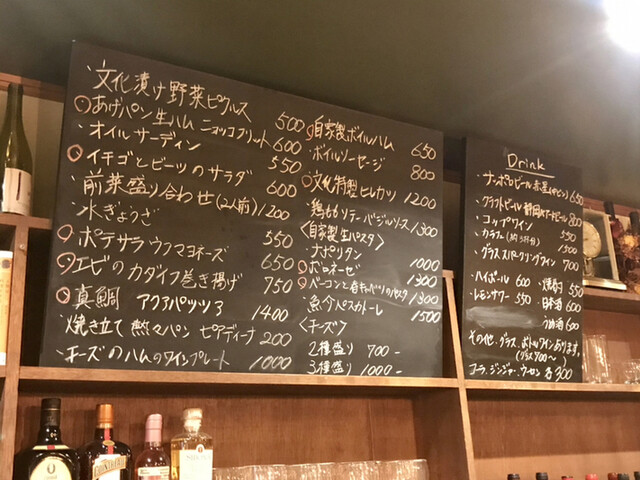 ・文化漬け野菜ピクルス 500
○あげパン生ハム ニョッコフリット 600
・オイルサーディン 550
○イチゴとビーツのサラダ 600
・前菜盛り合わせ(2人前) 1200
・水ぎょうざ 550
○ポテサラウフマヨネーズ 650
○エビのカダイフ巻き揚げ 750
○真鯛 アクアパッツァ 1400
・焼き立て 熱々パン ピアディーナ 200
・チーズのハムのワインプレート 1000
○自家製ボイルハム 650
・ボイルソーセージ 800
○文化特製ヒレカツ 1200
・鶏ももソテーバジルソース 1300
<自家製生パスタ>
・ナポリタン 1000
○ボロネーゼ 1300
○ベーコンと春キャベツのパスタ 1300
・魚介ペスカトーレ 1500
<チーズ>
2種盛り 700-
3種盛り 1000-
Drink
・サッポロビール赤星(中ビン) 650
・クラフトビール 静岡 800
・コップワイン 550
・カラフェ(約3杯分) 1500
・グラススパークリングワイン 700
・ハイボール 600
・焼酎 550
・レモンサワー 550
・日本酒 600
・うめ酒 600
その他、グラス、ボトルワインあります。
(グラス700〜)
コーラ、ジンジャー、ウーロン 各300